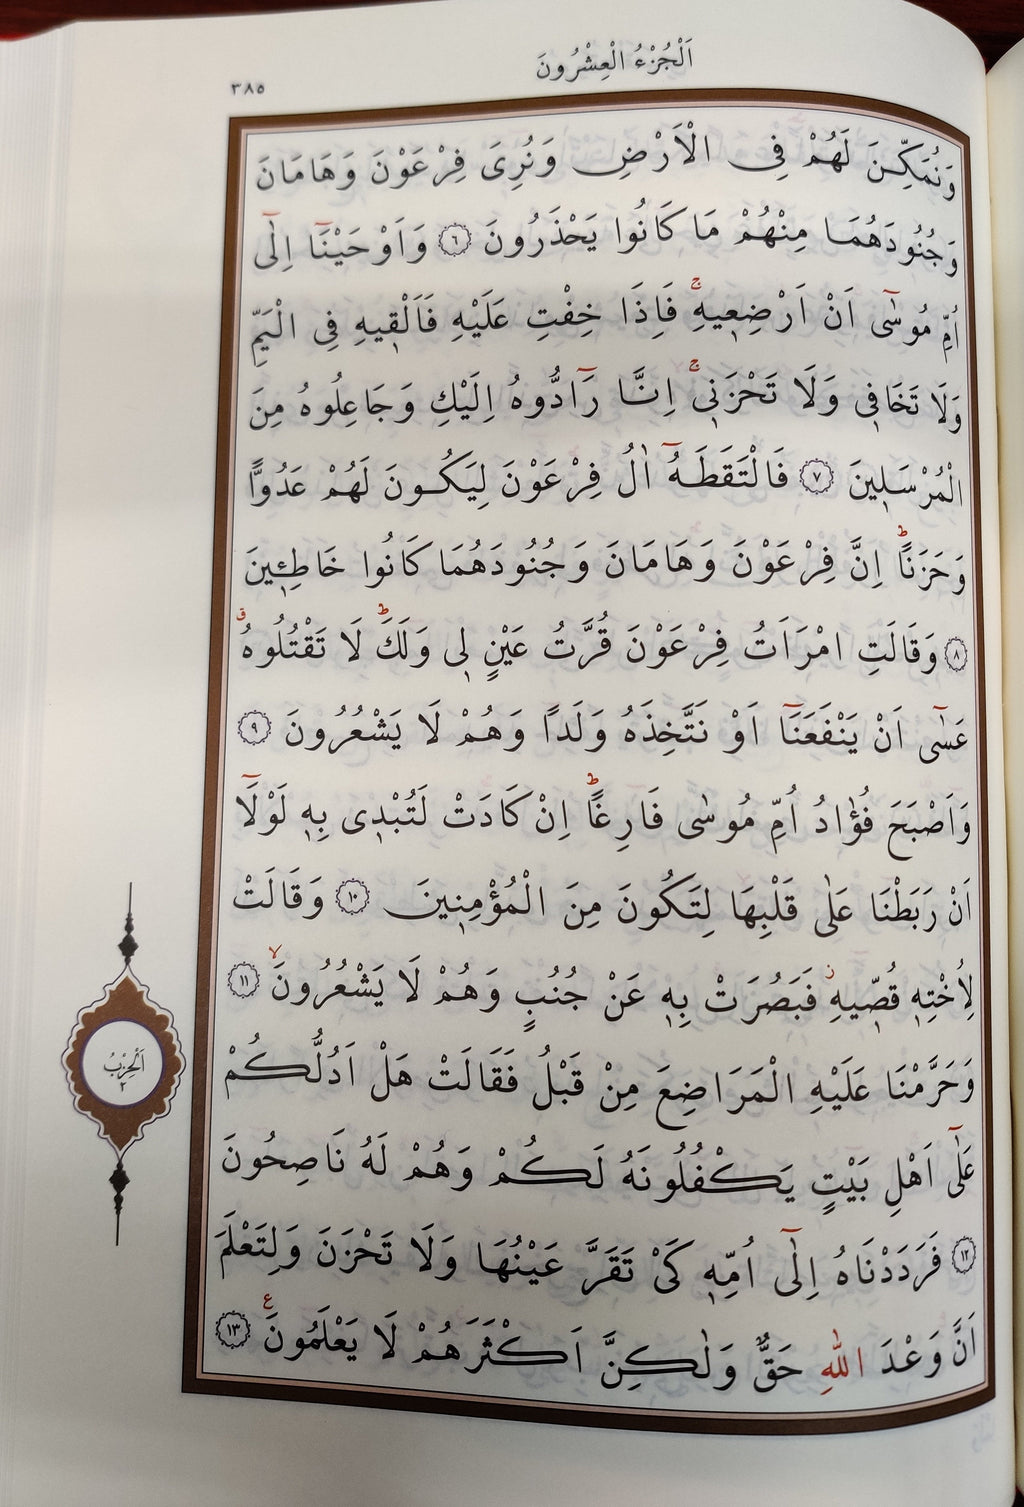 اَلْجُزْءُ الْعِشْرُونَ
٣٨٥
وَنُمَكِّنَ لَهُمْ فِى الْاَرْضِ وَنُرِىَ فِرْعَوْنَ وَهَامَانَ
وَجُنُودَهُمَا مِنْهُمْ مَا كَانُوا يَحْذَرُونَ ﴿٦﴾ وَاَوْحَيْنَٓا اِلٰٓى
اُمِّ مُوسٰٓى اَنْ اَرْضِعِيهِۚ فَاِذَا خِفْتِ عَلَيْهِ فَاَلْقِيهِ فِى الْيَمِّ
وَلَا تَخَافِى وَلَا تَحْزَنِىۚ اِنَّا رَٓادُّوهُ اِلَيْكِ وَجَاعِلُوهُ مِنَ
الْمُرْسَلِينَ ﴿٧﴾ فَالْتَقَطَهُٓ اٰلُ فِرْعَوْنَ لِيَكُونَ لَهُمْ عَدُوًّا
وَحَزَنًاؕ اِنَّ فِرْعَوْنَ وَهَامَانَ وَجُنُودَهُمَا كَانُوا خَاطِـِٔينَ
﴿٨﴾ وَقَالَتِ امْرَاَتُ فِرْعَوْنَ قُرَّتُ عَيْنٍ لِى وَلَكَؕ لَا تَقْتُلُوهُۗ
عَسٰٓى اَنْ يَنْفَعَنَٓا اَوْ نَتَّخِذَهُ وَلَدًا وَهُمْ لَا يَشْعُرُونَ ﴿٩﴾
وَاَصْبَحَ فُؤٰادُ اُمِّ مُوسٰى فَارِغًاؕ اِنْ كَادَتْ لَتُبْدِى بِهٖ لَوْلَٓا
اَنْ رَبَطْنَا عَلٰى قَلْبِهَا لِتَكُونَ مِنَ الْمُؤْمِنِينَ ﴿١٠﴾ وَقَالَتْ
لِاُخْتِهٖ قُصِّيهِؗ فَبَصُرَتْ بِهٖ عَنْ جُنُبٍ وَهُمْ لَا يَشْعُرُونَۙ ﴿١١﴾
وَحَرَّمْنَا عَلَيْهِ الْمَرَاضِعَ مِنْ قَبْلُ فَقَالَتْ هَلْ اَدُلُّكُمْ
عَلٰٓى اَهْلِ بَيْتٍ يَكْفُلُونَهُ لَكُمْ وَهُمْ لَهُ نَاصِحُونَ
﴿١٢﴾ فَرَدَدْنَاهُ اِلٰٓى اُمِّهٖ كَىْ تَقَرَّ عَيْنُهَا وَلَا تَحْزَنَ وَلِتَعْلَمَ
اَنَّ وَعْدَ اللّٰهِ حَقٌّ وَلٰكِنَّ اَكْثَرَهُمْ لَا يَعْلَمُونَࣖ ﴿١٣﴾
اَلْحِزْبُ
٢